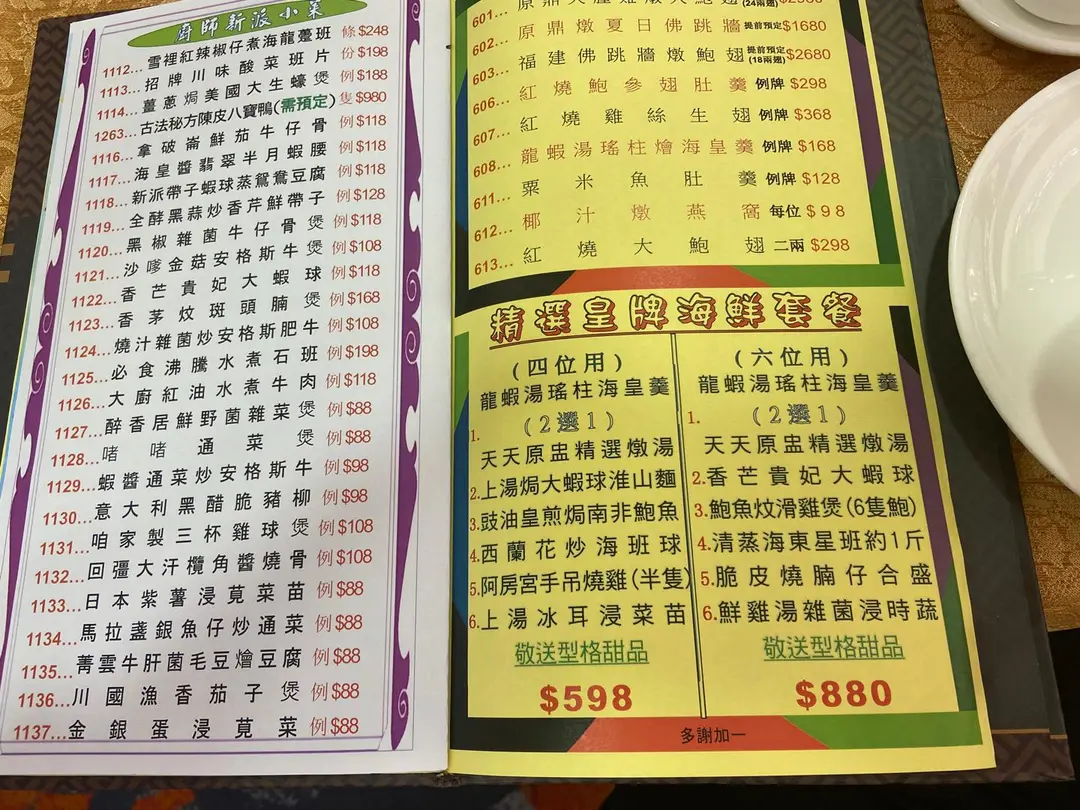 廚師新派小菜
1112...雪裡紅辣椒仔煮海龍躉班 條$248
1113...招牌川味酸菜班片 份$198
1114...薑蔥焗美國大生蠔煲 例$188
1263...古法秘方陳皮八寶鴨(需預定) 隻$980
1116...拿破崙鮮茄牛仔骨 例$118
1117...海皇醬翡翠半月蝦腰 例$118
1118...新派帶子蝦球蒸鴛鴦豆腐 例$118
1119...全酵黑蒜炒香芹鮮帶子 例$128
1120...黑椒雜菌牛仔骨煲 例$118
1121...沙嗲金菇安格斯牛煲 例$108
1122...香芒貴妃大蝦球 例$118
1123...香茅炆斑頭腩煲 例$168
1124...燒汁雜菌炒安格斯肥牛 例$108
1125...必食沸騰水煮石班 例$198
1126...大廚紅油水煮牛肉 例$118
1127...醉香居鮮野菌雜菜煲 例$88
1128...啫啫通菜煲 例$88
1129...蝦醬通菜炒安格斯牛 例$98
1130...意大利黑醋脆豬柳 例$98
1131...咱家製三杯雞球煲 例$108
1132...回彊大汗欖角醬燒骨 例$108
1133...日本紫薯浸莧菜苗 例$88
1134...馬拉盞銀魚仔炒通菜 例$88
1135...菁雲牛肝菌毛豆燴豆腐 例$88
1136...川國漁香茄子煲 例$88
1137...金銀蛋浸莧菜 例$88
601...原鼎 (24兩翅)
602...原鼎燉夏日佛跳牆 提前預定$1680
603...福建佛跳牆燉鮑翅 提前預定(18兩翅)$2680
606...紅燒鮑參翅肚羹 例牌$298
607...紅燒雞絲生翅 例牌$368
608...龍蝦湯瑤柱燴海皇羹 例牌$168
611...粟米魚肚羹 例牌$128
612...椰汁燉燕窩 每位$98
613...紅燒大鮑翅 二兩$298
精選皇牌海鮮套餐
(四位用)
龍蝦湯瑤柱海皇羹
1. (2選1)
天天原盅精選燉湯
2.上湯焗大蝦球淮山麵
3.豉油皇煎焗南非鮑魚
4.西蘭花炒海班球
5.阿房宮手吊燒雞(半隻)
6.上湯冰耳浸菜苗
敬送型格甜品
$598
(六位用)
龍蝦湯瑤柱海皇羹
1. (2選1)
天天原盅精選燉湯
2.香芒貴妃大蝦球
3.鮑魚炆滑雞煲(6隻鮑)
4.清蒸海東星班約1斤
5.脆皮燒腩仔合盛
6.鮮雞湯雜菌浸時蔬
敬送型格甜品
$880
多謝加一